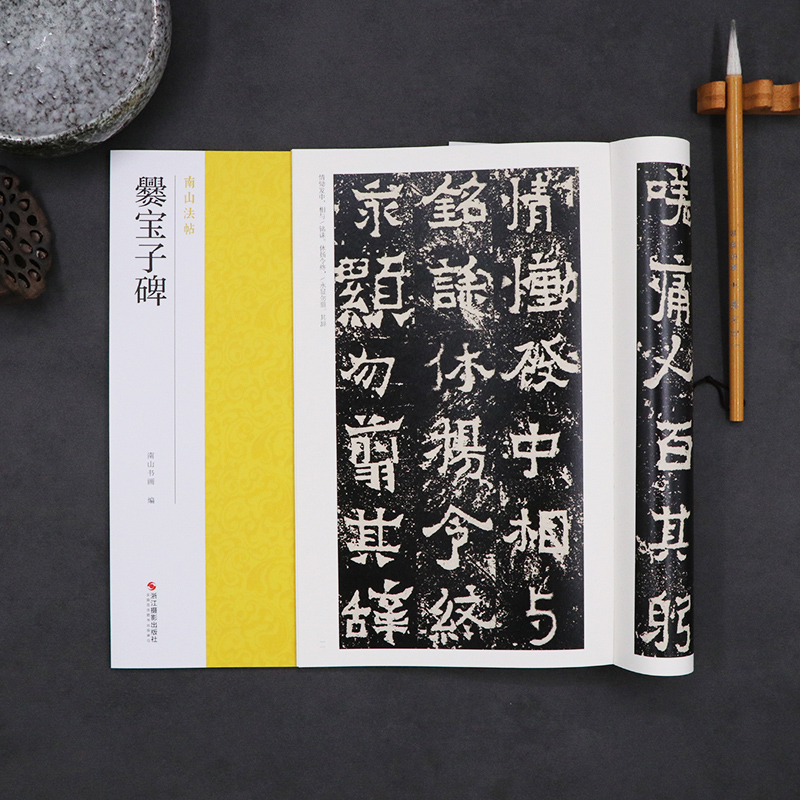 南山法帖
爨宝子碑
南山书画 编
浙江摄影出版社
嗟痛人百其躬
情慟發中相与
銘誄休揚令終
永顯勿翦其辞